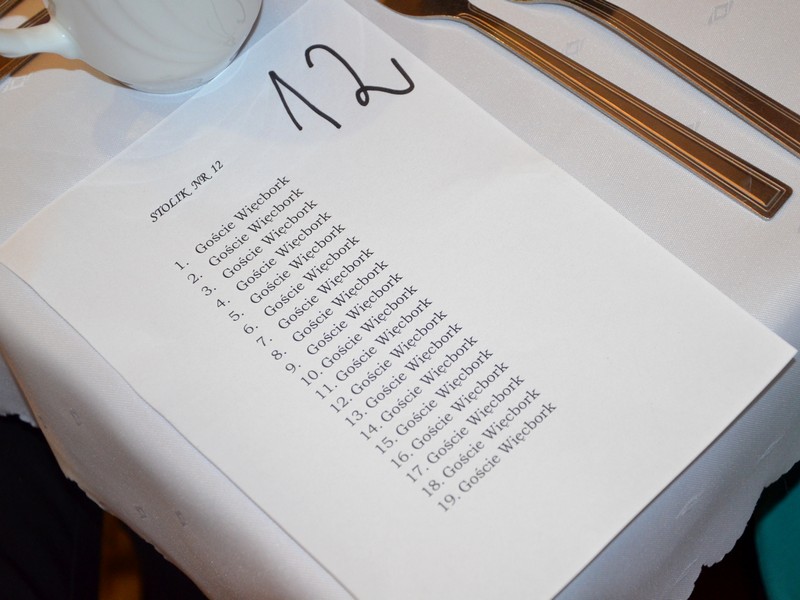 12
STOLIK NR 12
1. Goście Więcbork
2. Goście Więcbork
3. Goście Więcbork
4. Goście Więcbork
5. Goście Więcbork
6. Goście Więcbork
7. Goście Więcbork
8. Goście Więcbork
9. Goście Więcbork
10. Goście Więcbork
11. Goście Więcbork
12. Goście Więcbork
13. Goście Więcbork
14. Goście Więcbork
15. Goście Więcbork
16. Goście Więcbork
17. Goście Więcbork
18. Goście Więcbork
19. Goście Więcbork